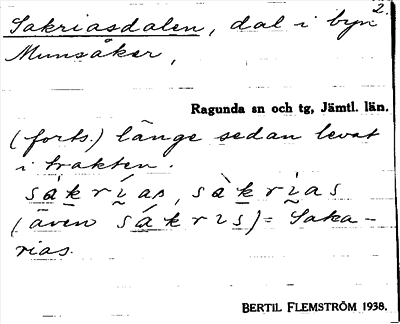 2.
Sakriasdalen, dal i byn
Munsåker,
Ragunda sn och tg, Jämtl. län.
(forts.) länge sedan levat
i trakten.
sákrías, sàkrìas
(även sákrıs) = Saka-
rias.
BERTIL FLEMSTRÖM 1938.